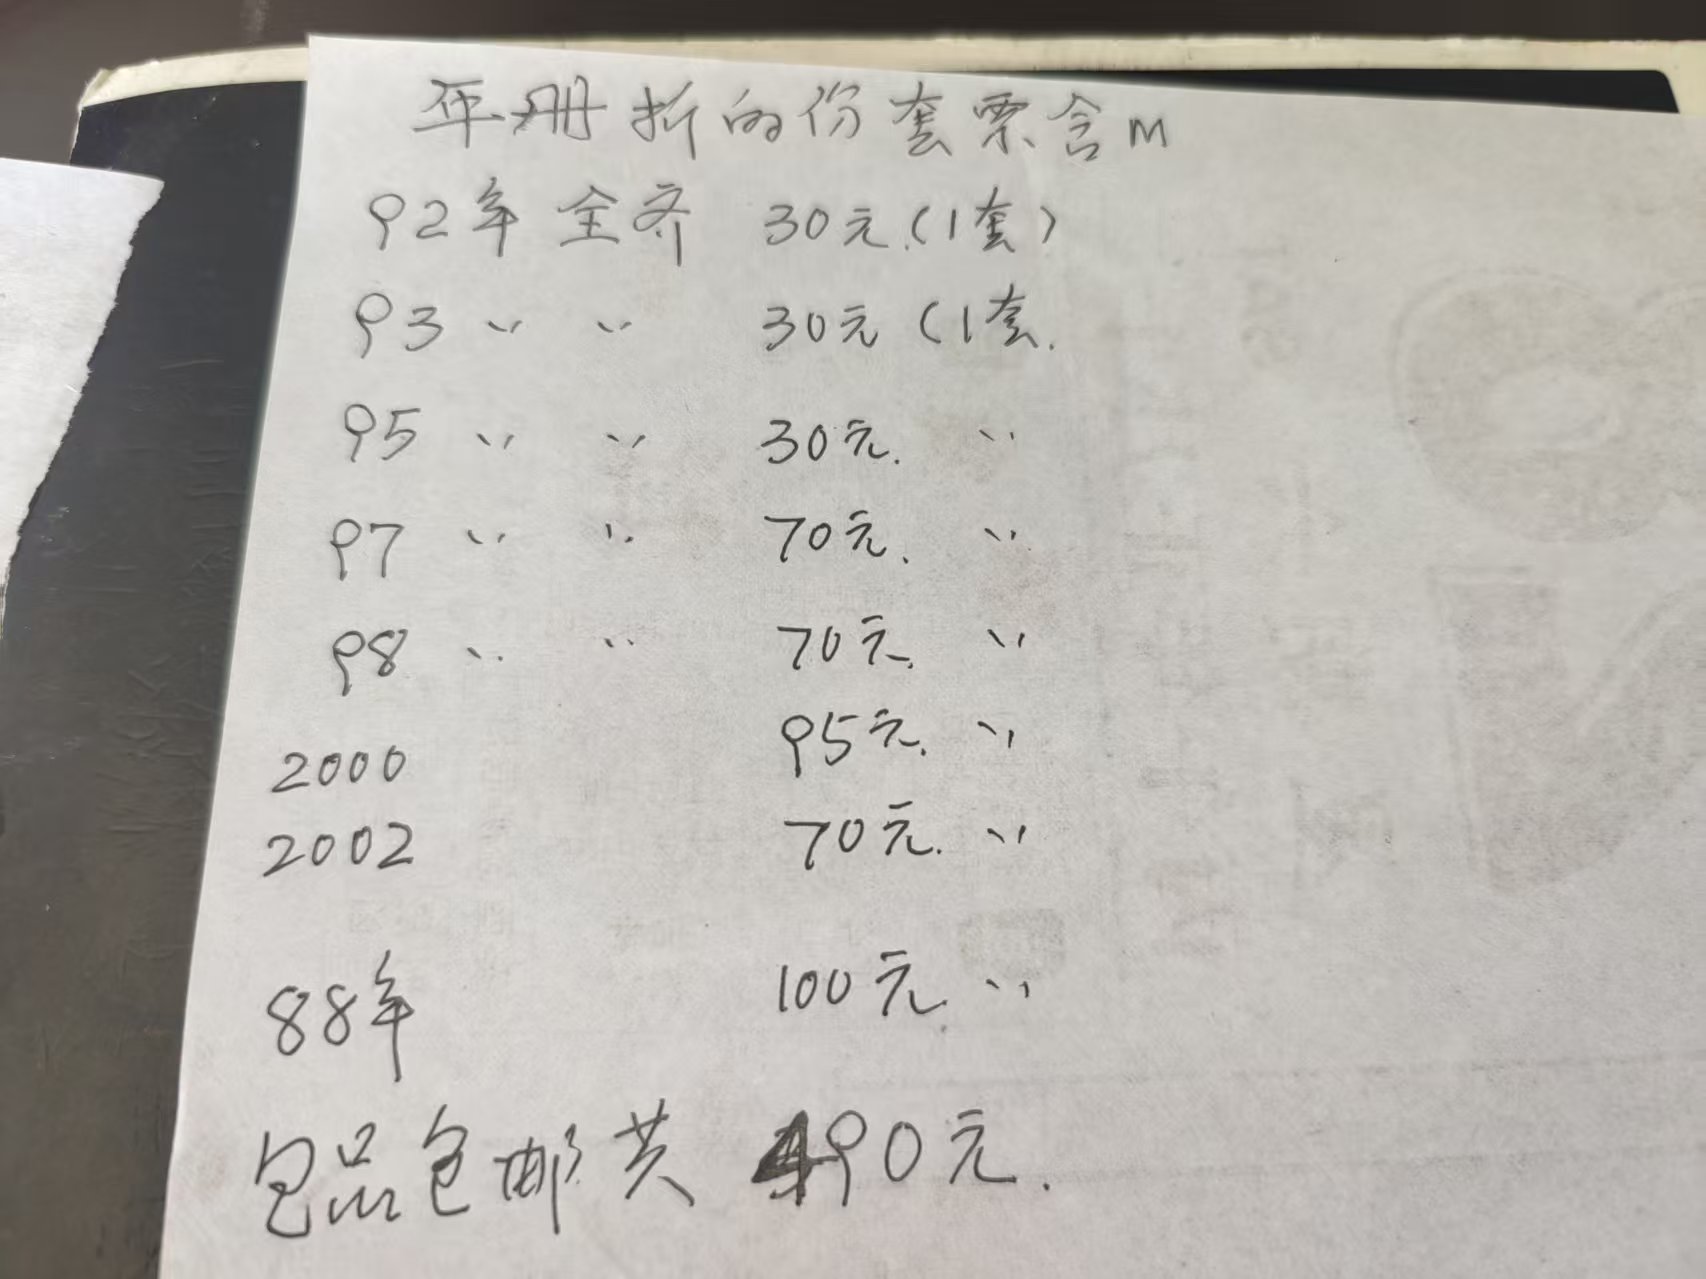 年册拆的份套票含m
92年全齐 30元.(1套)
93 〃 〃 30元(1套.
95 〃 〃 30元. 〃
97 〃 〃 70元. 〃
98 〃 〃 70元. 〃
2000 95元. 〃
2002 70元. 〃
88年 100元. 〃
包品包邮共 490元.